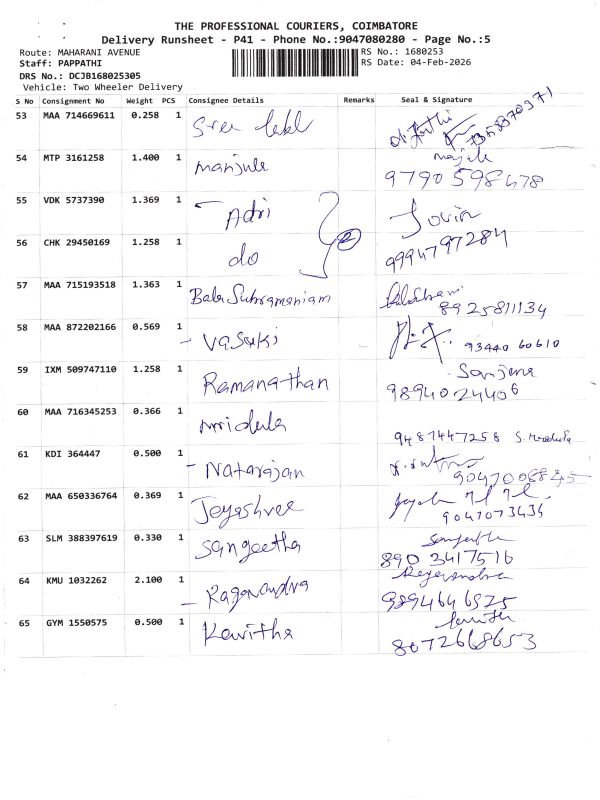 THE PROFESSIONAL COURIERS, COIMBATORE
Delivery Runsheet - P41 - Phone No.:9047080280 - Page No.:5
Route: MAHARANI AVENUE
RS No.: 1680253
Staff: PAPPATHI
RS Date: 04-Feb-2026
DRS No.: DCJB168025305
Vehicle: Two Wheeler Delivery
S No Consignment No Weight PCS Consignee Details Remarks Seal & Signature
53 MAA 714669611 0.258 1 Sree
54 MTP 3161258 1.400 1 manjula
9790598478
55 VDK 5737390 1.369 1 Adri
56 CHK 29450169 1.258 1 do 2
9994797284
57 MAA 715193518 1.363 1 Bala Subramaniam
8925811134
58 MAA 872202166 0.569 1 - Vasuki
93440 60610
59 IXM 509747110 1.258 1 Ramanathan Sanjana
9894024406
60 MAA 716345253 0.366 1 mridula
9487447258 S. Mridula
61 KDI 364447 0.500 1 - Natarajan
9047008845
62 MAA 650336764 0.369 1 Jeyashree
9047073435
63 SLM 388397619 0.330 1 Sangeetha
890 3417516
64 KMU 1032262 2.100 1 - Ragavandra
9894646525
65 GYM 1550575 0.500 1 Kavitha
8072668653